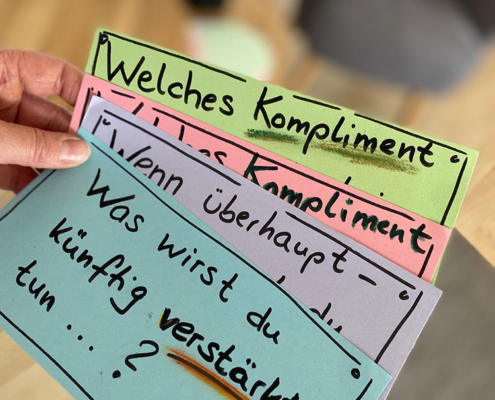 Welches Kompliment
Kompliment
Wenn überhaupt –
du
Was wirst du
künftig verstärkt
tun ... ?